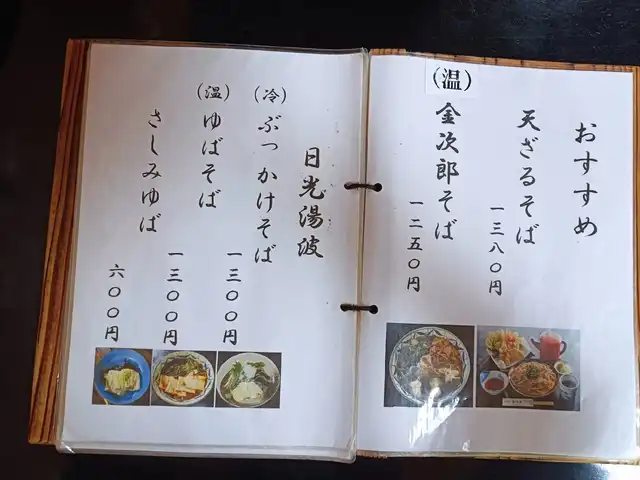 おすすめ
天ざるそば
一三八〇円
(温)
金次郎そば
一二五〇円
日光湯波
(冷)
ぶっかけそば
一三〇〇円
(温)
ゆばそば
一三〇〇円
さしみゆば
六〇〇円